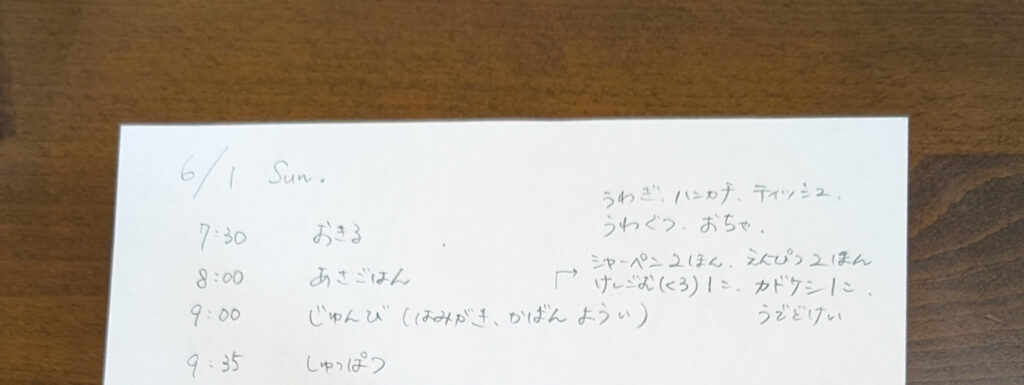 6/1 Sun.
7:30 おきる
8:00 あさごはん
9:00 じゅんび(はみがき、かばん ようい)
9:35 しゅっぱつ
うわぎ、ハンカチ、ティッシュ、
うわぐつ、おちゃ、
シャーペン2ほん、えんぴつ2ほん
けしごむ(くろ)1こ、カドケシ1こ、
うでどけい